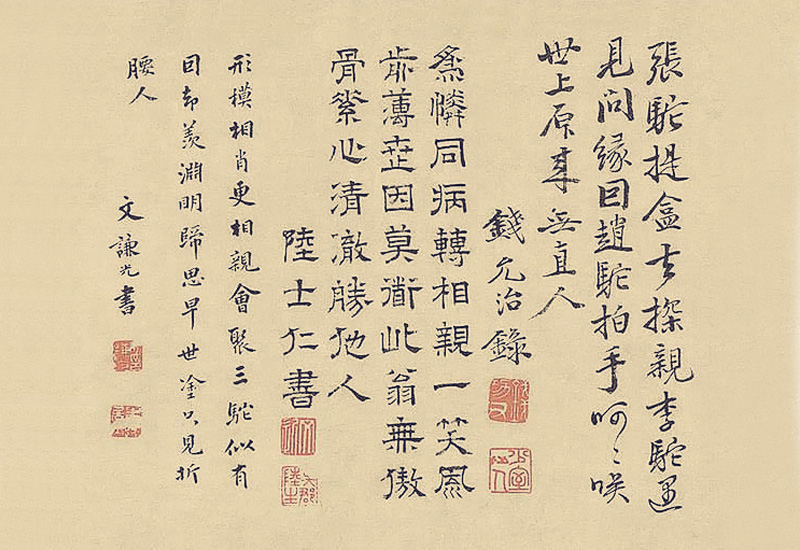 張駝提盒去探親李駝遇
見問緣囙趙駝拍手呵〻咲
世上原來無直人
錢允治錄
為憐同病轉相親一笑風
前薄世因莫衜此翁無傲
骨縈心清澈勝他人
陸士仁書
形模相肖更相親會聚三駝似有
囙却羨淵明歸思早世塗只見折
腰人
文謙光書